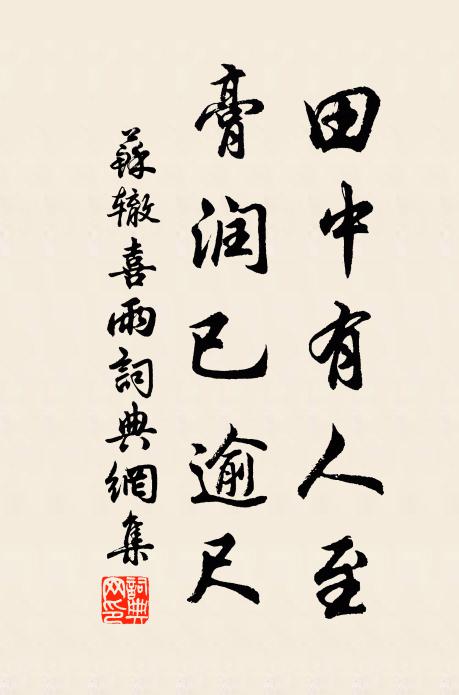 田中有人至
膏润已逾尺
蘇辙喜雨詞典網集
詞典网印